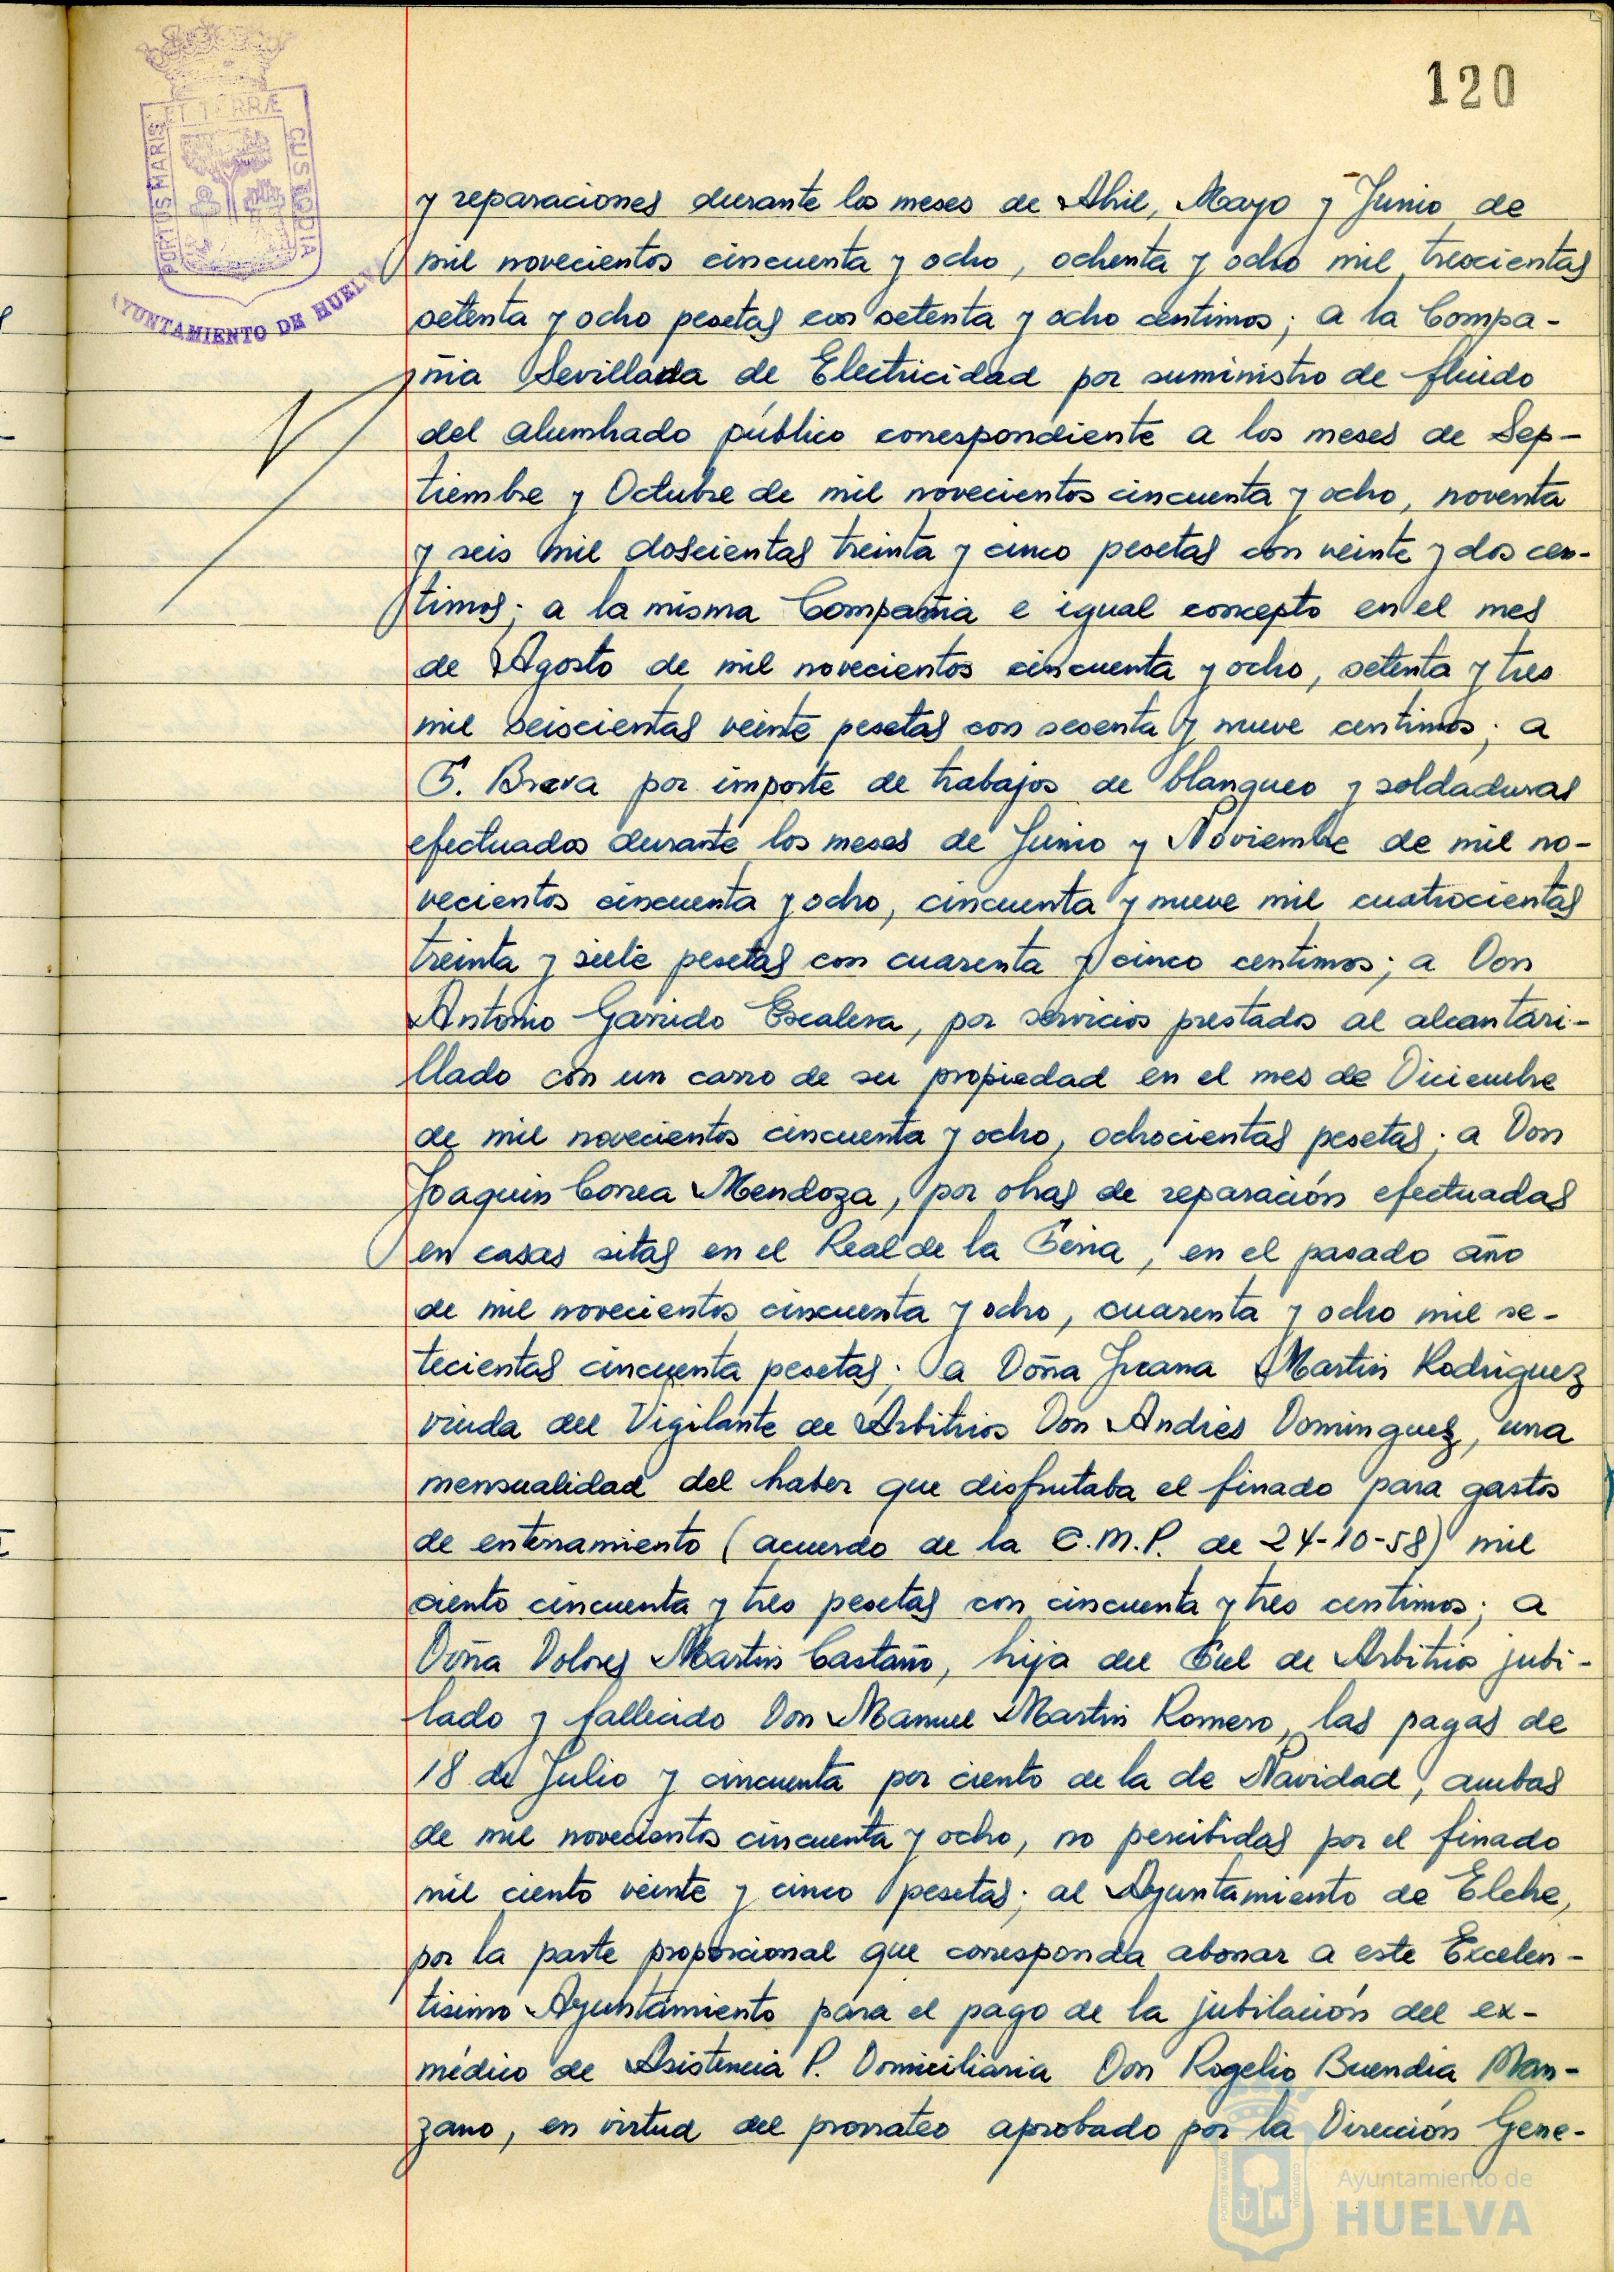 120
ET TERRÆ
PORTUS MARIS
CUSTODIA
AYUNTAMIENTO DE HUELVA
y reparaciones durante los meses de Abril, Mayo y Junio de
mil novecientos cincuenta y ocho, ochenta y ocho mil trescientas
setenta y ocho pesetas con setenta y ocho centimos; a la Compa-
ñia Sevillana de Electricidad por suministro de fluido
del alumbrado público correspondiente a los meses de Sep-
tiembre y Octubre de mil novecientos cincuenta y ocho, noventa
y seis mil doscientas treinta y cinco pesetas con veinte y dos cen-
timos; a la misma Compañia e igual concepto en el mes
de Agosto de mil novecientos cincuenta y ocho, setenta y tres
mil seiscientas veinte pesetas con sesenta y nueve centimos; a
F. Brava por importe de trabajos de blanqueo y soldaduras
efectuados durante los meses de Junio y Noviembre de mil no-
vecientos cincuenta y ocho, cincuenta y nueve mil cuatrocientas
treinta y siete pesetas con cuarenta y cinco centimos; a Don
Antonio Garrido Escalera, por servicios prestados al alcantari-
llado con un carro de su propiedad en el mes de Diciembre
de mil novecientos cincuenta y ocho, ochocientas pesetas; a Don
Joaquin Correa Mendoza, por obras de reparación efectuadas
en casas sitas en el Real de la Feria, en el pasado año
de mil novecientos cincuenta y ocho, cuarenta y ocho mil se-
tecientas cincuenta pesetas; a Doña Juana Martin Rodriguez
viuda del Vigilante de Arbitrios Don Andres Dominguez, una
mensualidad del haber que disfrutaba el finado para gastos
de enterramiento (acuerdo de la C.M.P. de 24-10-58) mil
ciento cincuenta y tres pesetas con cincuenta y tres centimos; a
Doña Dolores Martin Castaño, hija del Fiel de Arbitrios jubi-
lado y fallecido Don Manuel Martin Romero, las pagas de
18 de Julio y cincuenta por ciento de la de Navidad, ambas
de mil novecientos cincuenta y ocho, no percibidas por el finado
mil ciento veinte y cinco pesetas; al Ayuntamiento de Elche,
por la parte proporcional que corresponda abonar a este Excelen-
tisimo Ayuntamiento para el pago de la jubilación del ex-
médico de Asistencia P. Domiciliaria Don Rogelio Buendia Man-
zano, en virtud del prorrateo aprobado por la Dirección Gene-
Ayuntamiento de
HUELVA